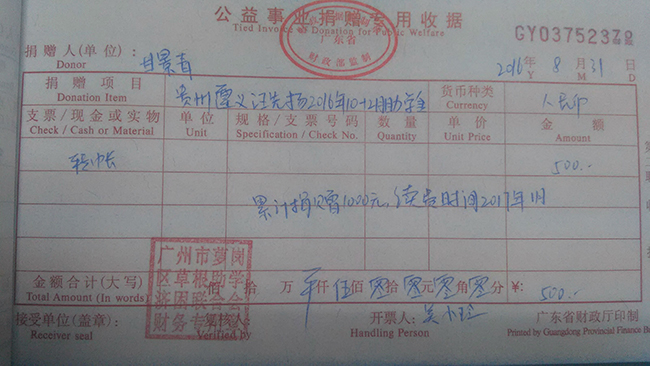 公益事业捐赠专用收据
Tied Invoice Donation for Public Welfare
广东省
财政部监制
GY03752372
捐赠人(单位):
Donor
甘景青
2016年 8月 31日
Y M D
捐赠项目
Donation Item
贵州遵义汪先扬2016年10-12月助学金
货币种类
Currency
人民币
支票/现金或实物
Check / Cash or Material
单位
Unit
规格/支票号码
Specification / Check No.
数量
Quantity
单价
Unit Price
金额
Amount
转帐
500.-
累计捐赠1000元,续费时间2017年1月
金额合计(大写)
Total Amount (In words)
佰 拾 万 仟 伍佰 零拾 零元 零角 零分 ¥:
500.-
广州市萝岗
区草根助学
济困联合会
财务专用章
接受单位(盖章):
Receiver seal
复核人:
Verified by
开票人:
Handling Person
广东省财政厅印制
Printed by Guangdong Provincial Finance